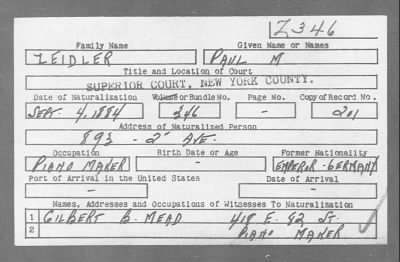 Z346
Family Name Given Name or Names
ZEIDLER PAUL M
Title and Location of Court
SUPERIOR COURT, NEW YORK COUNTY.
Date of Naturalization Volume or Bundle No. Page No. Copy of Record No.
SEPT. 4, 1884 346 - 201
Address of Naturalized Person
893 - 2" AVE.
Occupation Birth Date or Age Former Nationality
PIANO MAKER - EMPEROR-GERMANY
Port of Arrival in the United States Date of Arrival
- -
Names, Addresses and Occupations of Witnesses To Naturalization
1 GILBERT B. MEAD 418 E. 82 ST.
2 PIANO MAKER